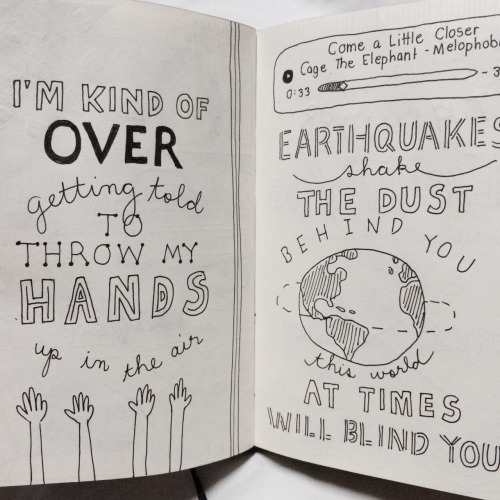 I'M KIND OF
OVER
getting told
TO
THROW MY
HANDS
up in the air
Come a Little Closer
Cage The Elephant - Melophobi
0:33 - 3
EARTHQUAKES
shake
THE DUST
BEHIND YOU
this world
AT TIMES
WILL BLIND YOU